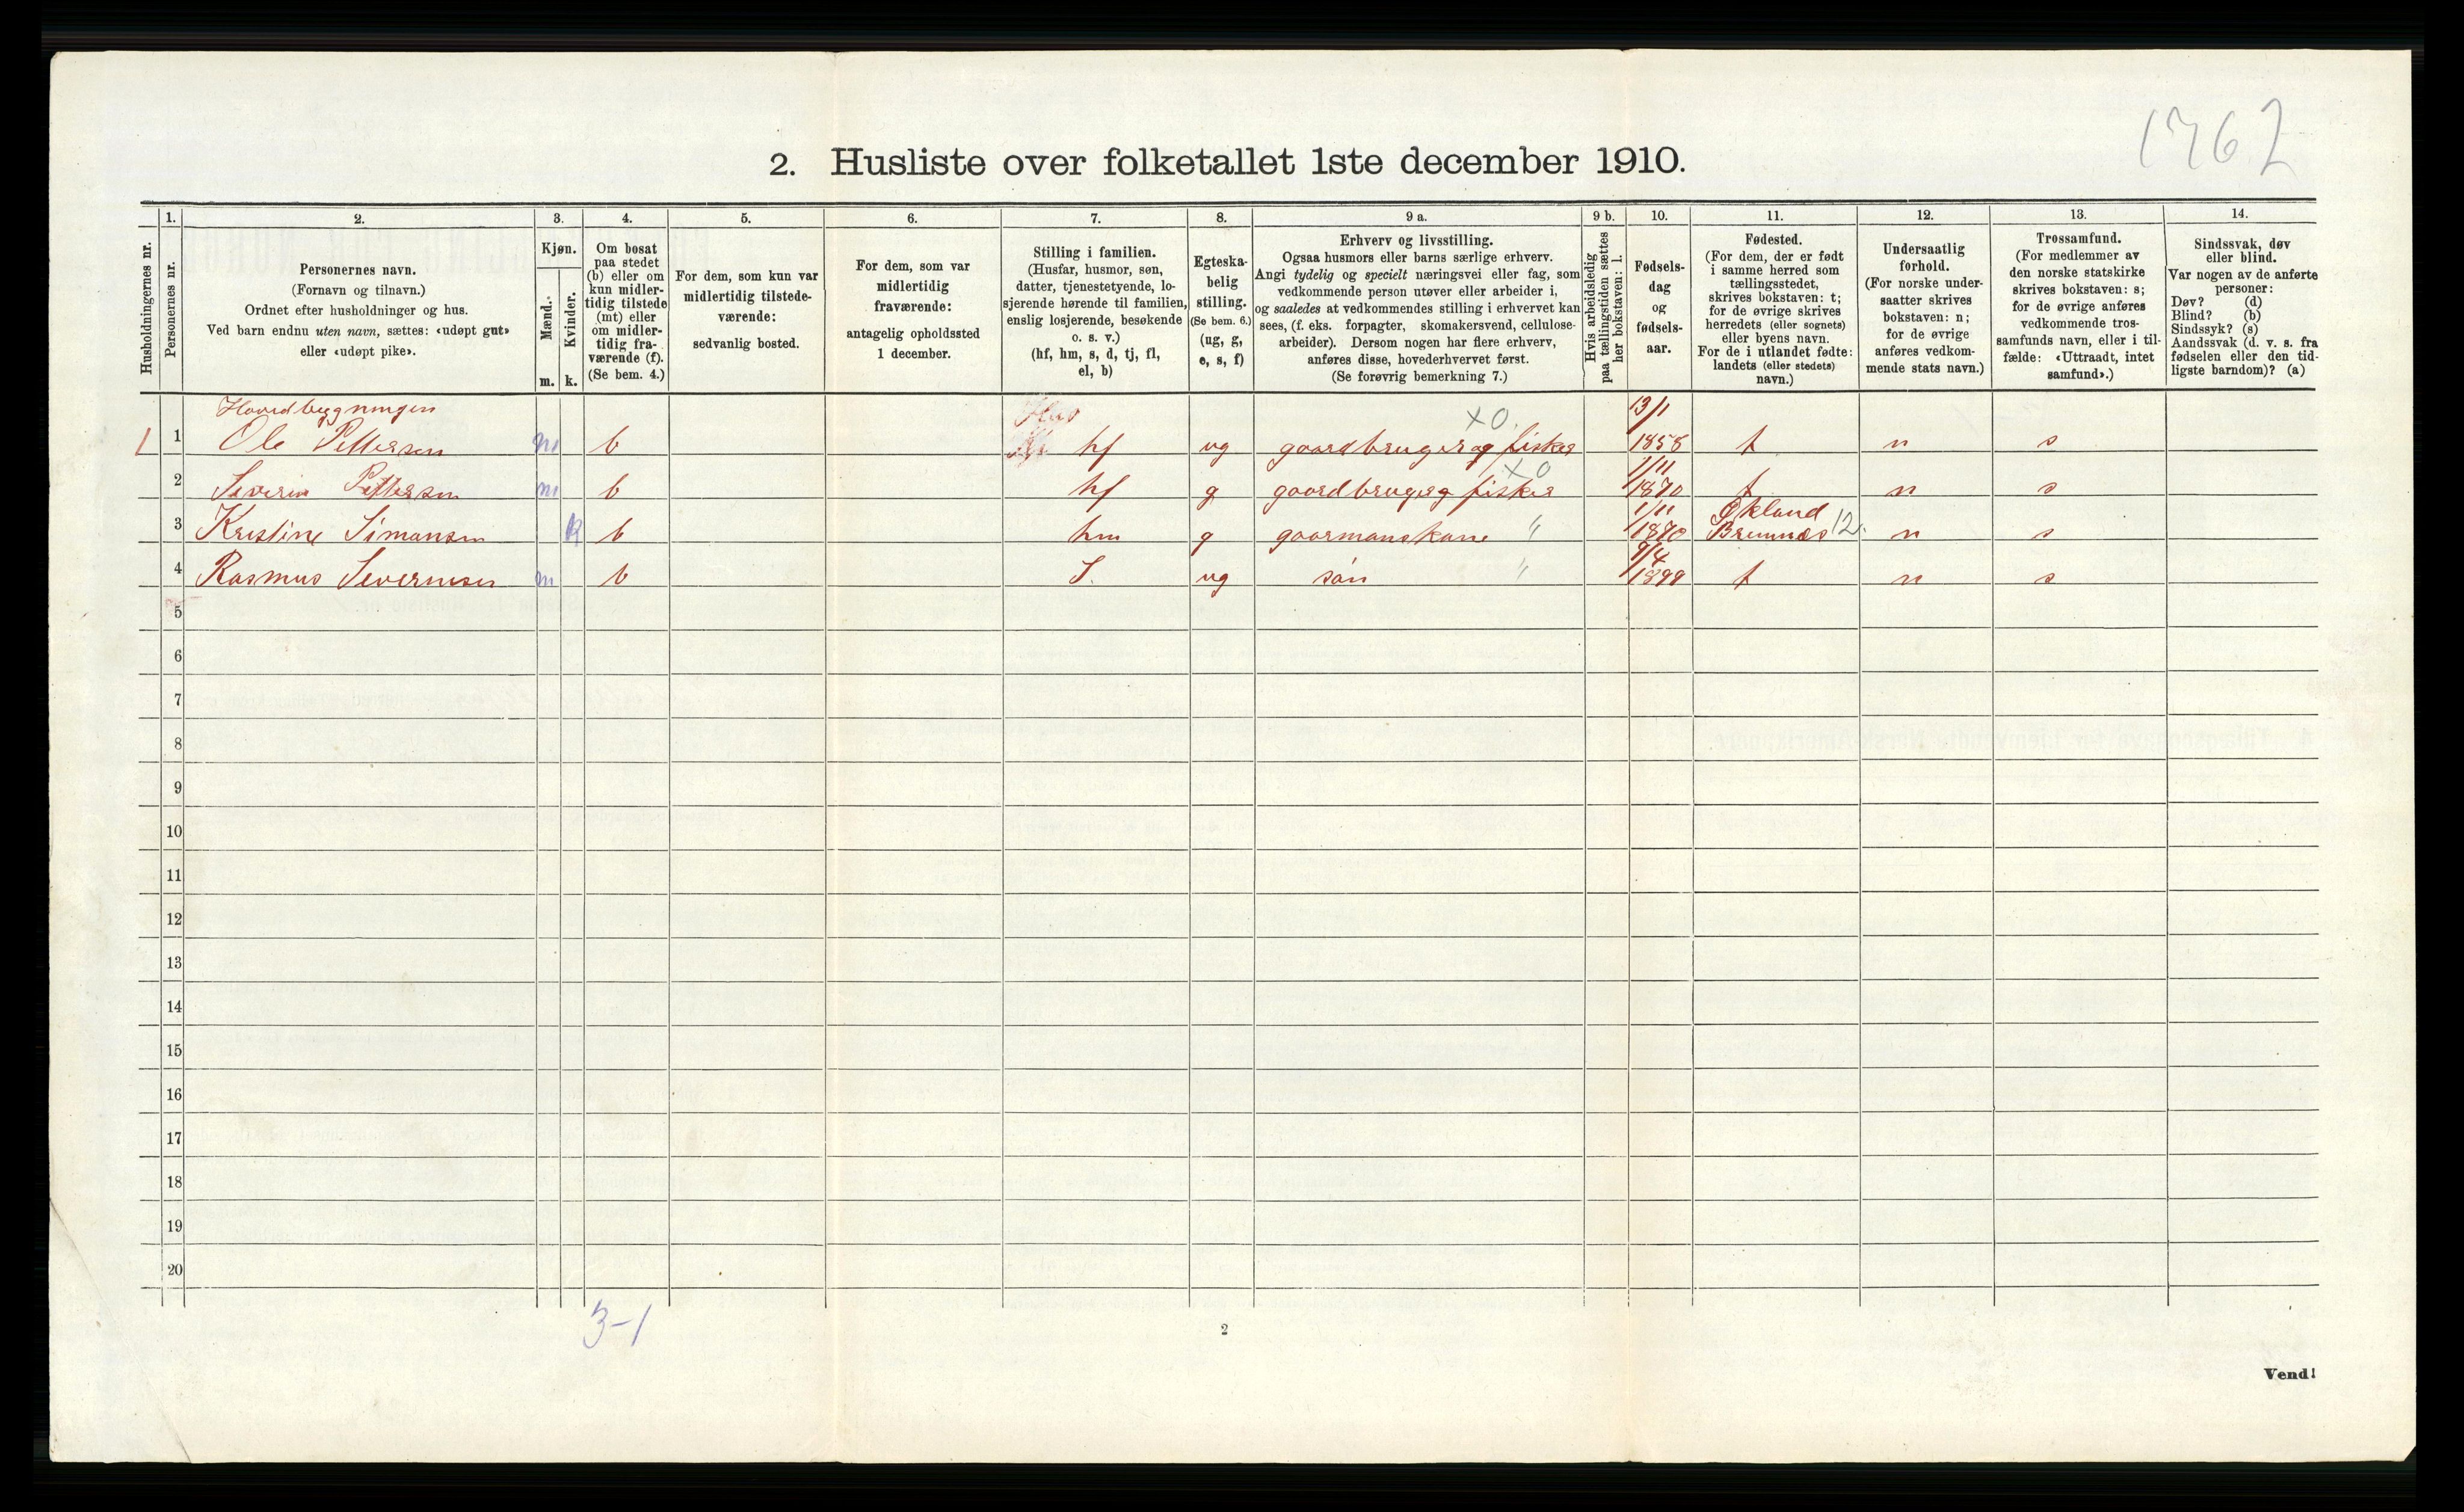 1762
2. Husliste over folketallet 1ste december 1910.
Husholdningernes nr.
1.
Personernes nr.
2.
Personernes navn.
(Fornavn og tilnavn.)
Ordnet efter husholdninger og hus.
Ved barn endnu uten navn, sættes: «udøpt gut»
eller «udøpt pike».
3.
Kjøn.
Mænd.
m.
Kvinder.
k.
4.
Om bosat
paa stedet
(b) eller om
kun midler-
tidig tilstede
(mt) eller
om midler-
tidig fra-
værende (f).
(Se bem. 4.)
5.
For dem, som kun var
midlertidig tilstede-
værende:
sedvanlig bosted.
6.
For dem, som var
midlertidig
fraværende:
antagelig opholdssted
1 december.
7.
Stilling i familien.
(Husfar, husmor, søn,
datter, tjenestetyende, lo-
sjerende hørende til familien,
enslig losjerende, besøkende
o. s. v.)
(hf, hm, s, d, tj, fl,
el, b)
8.
Egteska-
belig
stilling.
(Se bem. 6.)
(ug, g,
e, s, f)
9 a.
Erhverv og livsstilling.
Ogsaa husmors eller barns særlige erhverv.
Angi tydelig og specielt næringsvei eller fag, som
vedkommende person utøver eller arbeider i,
og saaledes at vedkommendes stilling i erhvervet kan
sees, (f. eks. forpagter, skomakersvend, cellulose-
arbeider). Dersom nogen har flere erhverv,
anføres disse, hovederhvervet først.
(Se forøvrig bemerkning 7.)
9 b.
Hvis arbeidsledig
paa tællingstiden sættes
her bokstaven: l.
10.
Fødsels-
dag
og
fødsels-
aar.
11.
Fødested.
(For dem, der er født
i samme herred som
tællingsstedet,
skrives bokstaven: t;
for de øvrige skrives
herredets (eller sognets)
eller byens navn.
For de i utlandet fødte:
landets (eller stedets)
navn.)
12.
Undersaatlig
forhold.
(For norske under-
saatter skrives
bokstaven: n;
for de øvrige
anføres vedkom-
mende stats navn.)
13.
Trossamfund.
(For medlemmer av
den norske statskirke
skrives bokstaven: s;
for de øvrige anføres
vedkommende tros-
samfunds navn, eller i til-
fælde: «Uttraadt, intet
samfund».)
14.
Sindssvak, døv
eller blind.
Var nogen av de anførte
personer:
Døv? (d)
Blind? (b)
Sindssyk? (s)
Aandssvak (d. v. s. fra
fødselen eller den tid-
ligste barndom)? (a)
Hovedbygningen 13/1
1 1 Ole Pettersen m b hf ug gaardbruger og fisker x0 1858 t n s
2 Severin Pettersen m b hf g gaardbruger og fisker x0 1/11 1870 t n s
3 Kristine Simonsen k b hm g gaarmanskone " 1/11 1870 Økland Bremnes 12. n s
4 Rasmus Severinsen m b S. ug søn " 9/4 1899 t n s
5
6
7
8
9
10
11
12
13
14
15
16
17
18
19
20
3-1
2
Vend!